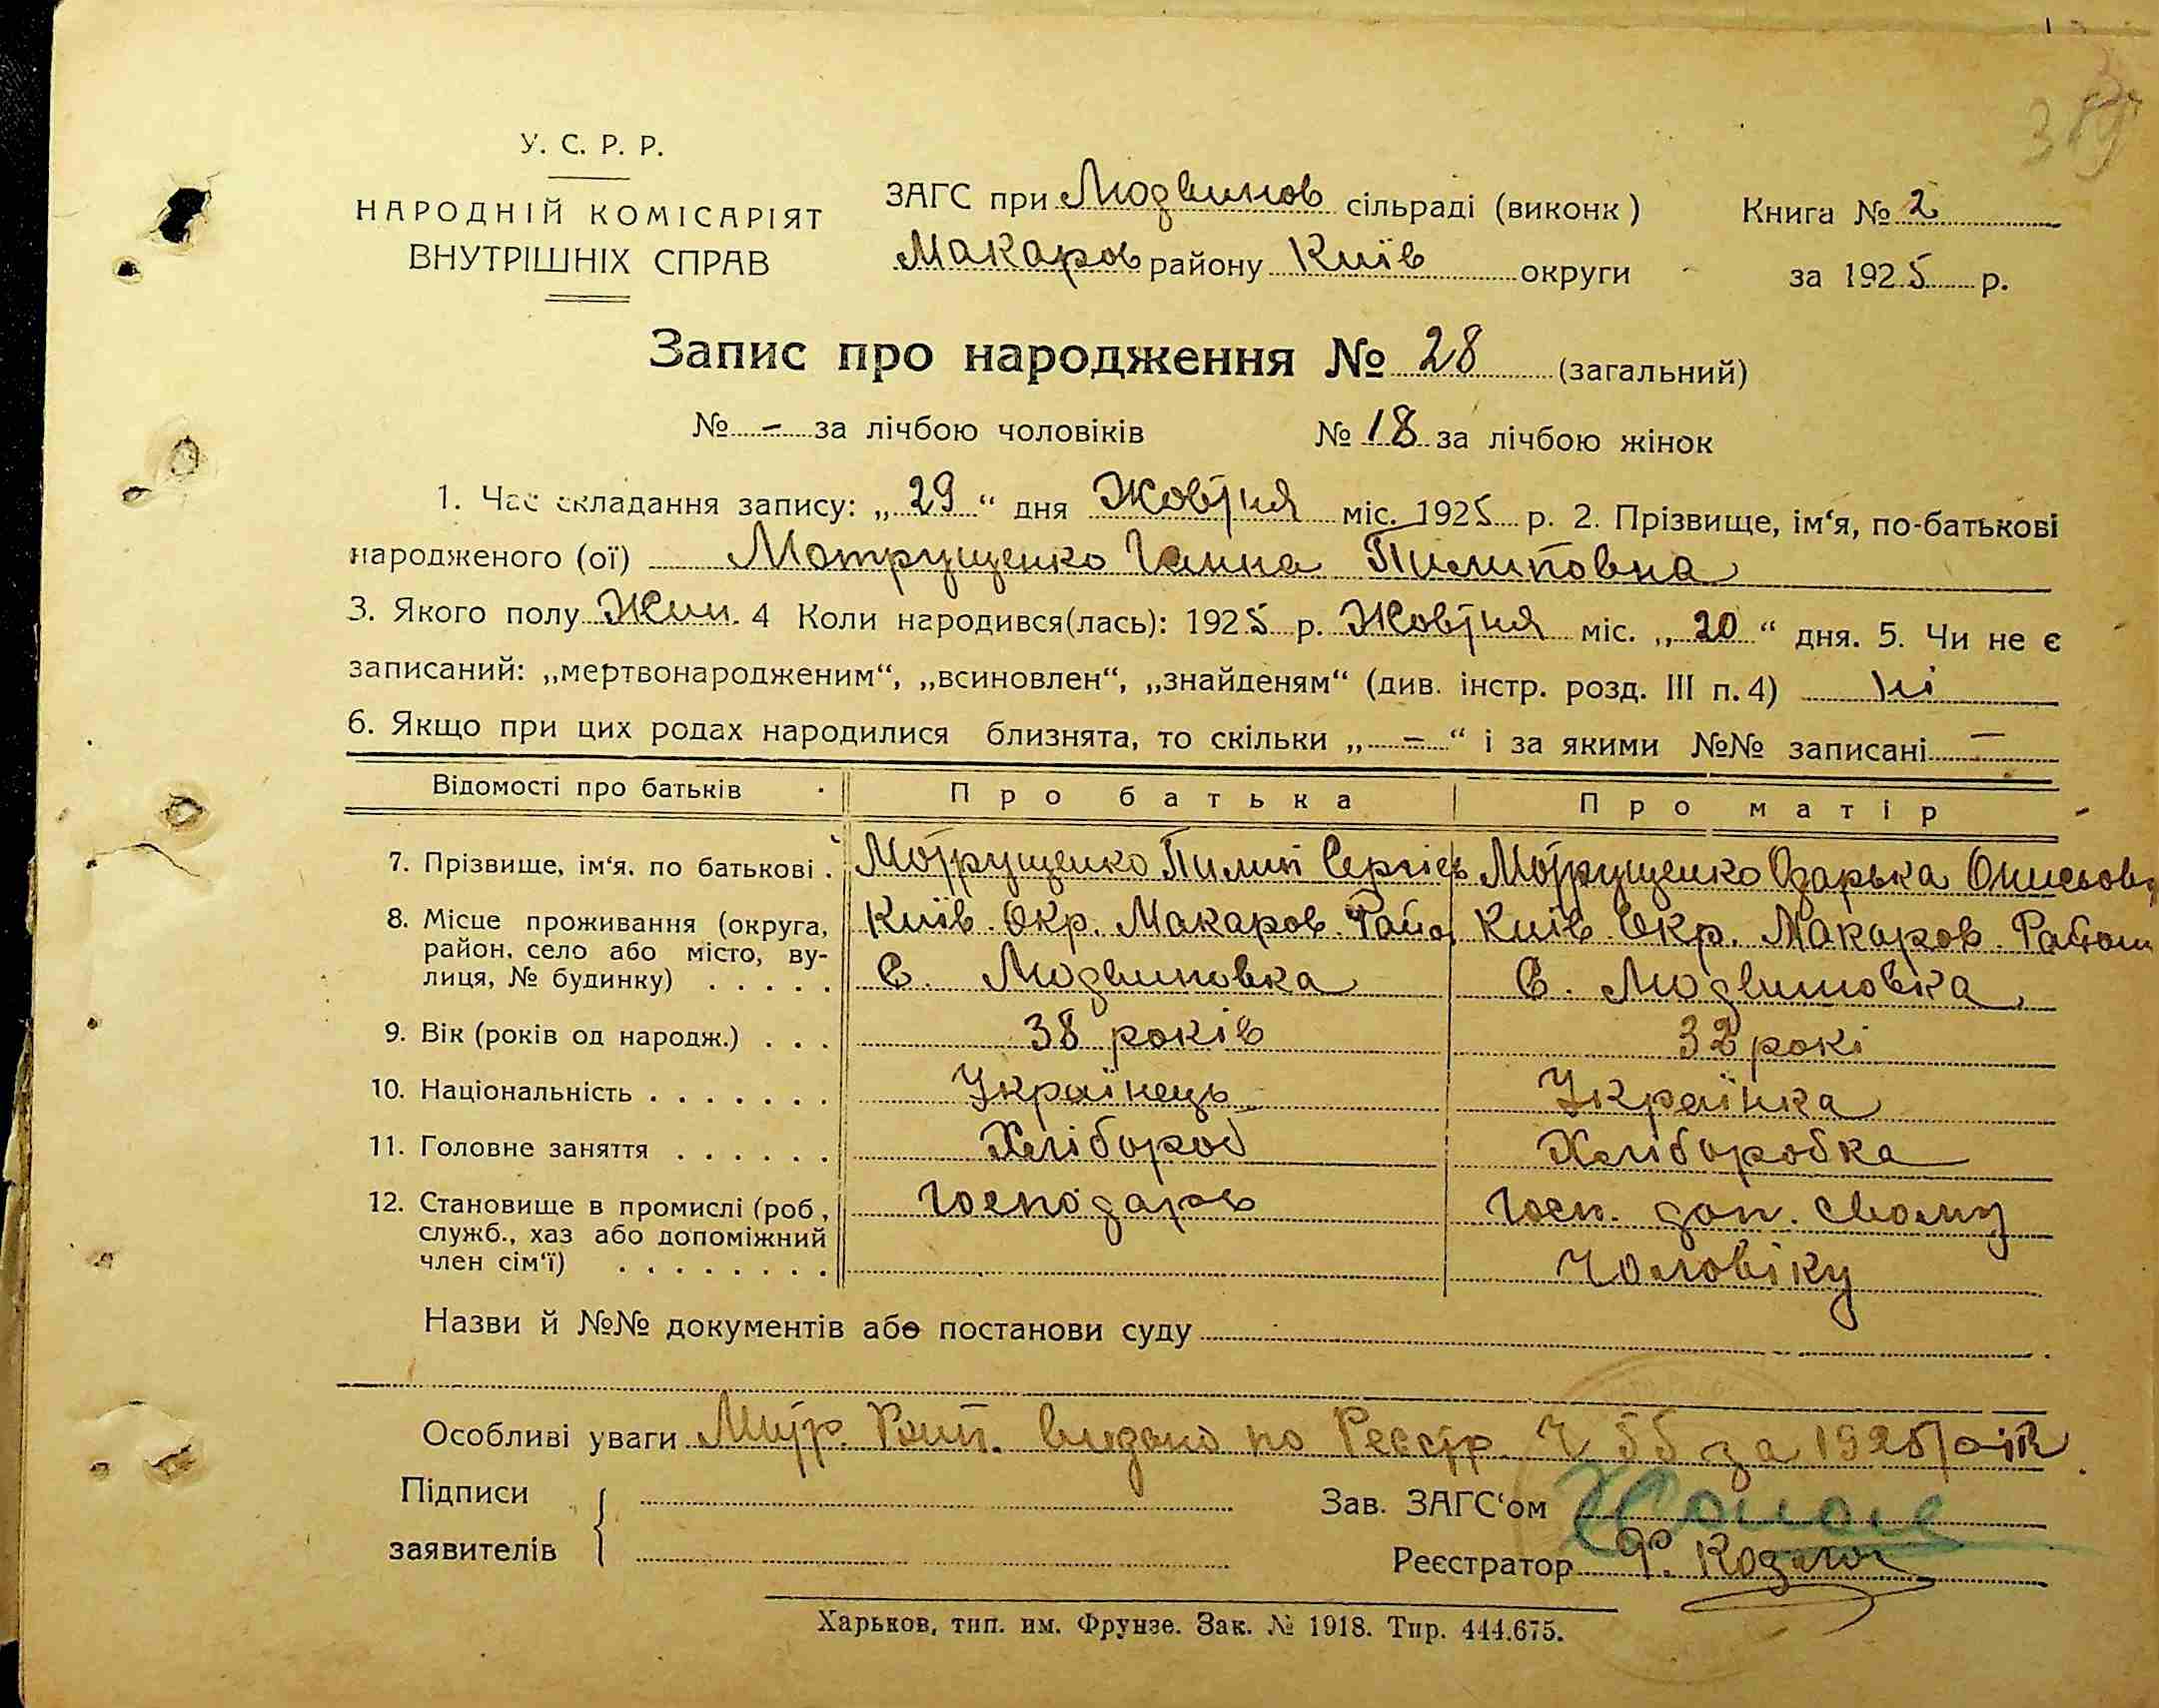 389
У. С. Р. Р.
НАРОДНІЙ КОМІСАРІЯТ
ВНУТРІШНІХ СПРАВ
ЗАГС при Людвинов сільраді (виконк)
Макаров району Київ округи
Книга № 2
за 1925 р.
Запис про народження № 28 (загальний)
№ - за лічбою чоловіків № 18 за лічбою жінок
1. Час складання запису: „29“ дня Жовтня міс. 1925 р. 2. Прізвище, ім‘я, по-батькові
народженого (ої) Мотрущенко Ганна Пилиповна
3. Якого полу Жин. 4 Коли народився(лась): 1925 р. Жовтня міс. „20“ дня. 5. Чи не є
записаний: „мертвонародженим“, „всиновлен“, „знайденям“ (див. інстр. розд. III п. 4) ні
6. Якщо при цих родах народилися близнята, то скільки „-“ і за якими №№ записані -
Відомості про батьків Про батька Про матір
7. Прізвище, ім‘я. по батькові . Мотрущенко Пилип Сергієв Мотрущенко Одарька
8. Місце проживання (округа, Київ. Окр. Макаров. Район Київ. Окр. Макаров. Район
район, село або місто, ву-
лиця, № будинку) . . . . . С. Людвиновка С. Людвиновка
9. Вік (років од народж.) . . . 38 років 32 рокі
10. Національність . . . . . . . Українець Українка
11. Головне заняття . . . . . . Хлібороб Хліборобка
12. Становище в промислі (роб., Господарь Госп. доп. свому
служб., хаз або допоміжний
член сім‘ї) . . . . . . . . Чоловіку
Назви й №№ документів або постанови суду
Особливі уваги видано по Реєстр. Ч 55 за 1925 рік
Підписи
заявителів
Зав. ЗАГС‘ом
Реєстратор Ф.
Харьков, тип. им. Фрунзе. Зак. № 1918. Тир. 444.675.